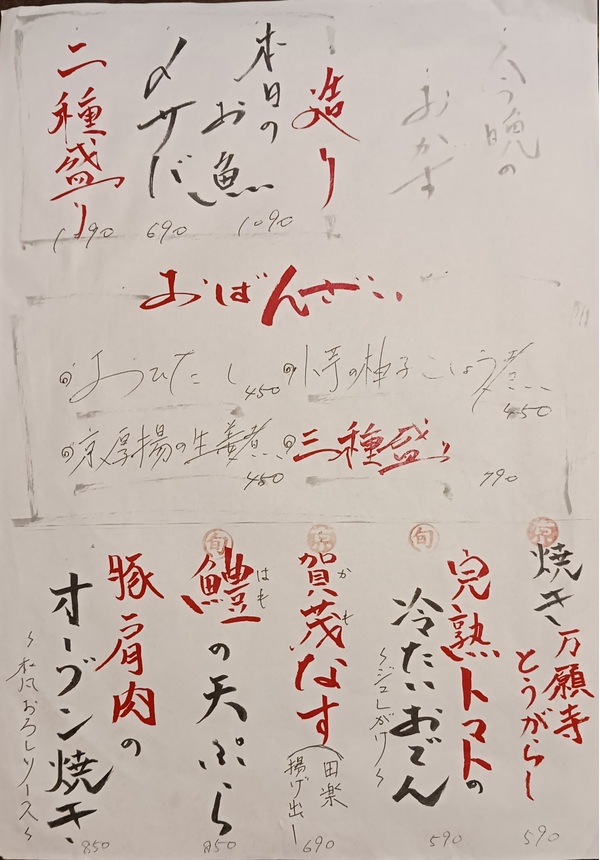 今晩の
おかず
造り
本日の
お魚
1090
〆サバ
690
二種盛り
1190
おばんざい
旬 おひたし
450
旬 小芋の柚子こしょう煮
450
旬 京厚揚の生姜煮
450
旬 三種盛り
790
京
焼き万願寺
とうがらし
590
旬
完熟トマトの
冷たいおでん
~ジュレがけ~
590
京
賀茂なす
かも
田楽
揚げ出し
690
旬
鱧の天ぷら
はも
850
豚肩肉の
オーブン焼き
~和風おろしソース~
850